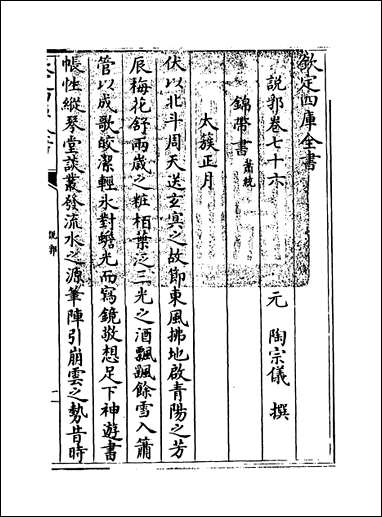 欽定四庫全書
說郛卷七十六
元 陶宗儀 撰
錦帶書 蕭統
太簇正月
伏以北斗周天送玄㝠之故節東風拂地啟青陽之芳
辰梅花舒兩歲之粧栢葉泛三光之酒飄颻餘雪入簫
管以成歌皎潔輕氷對蟾光而寫鏡敬想足下神遊書
帳性縱琴堂談叢發流水之源筆陣引崩雲之勢昔時
說郛